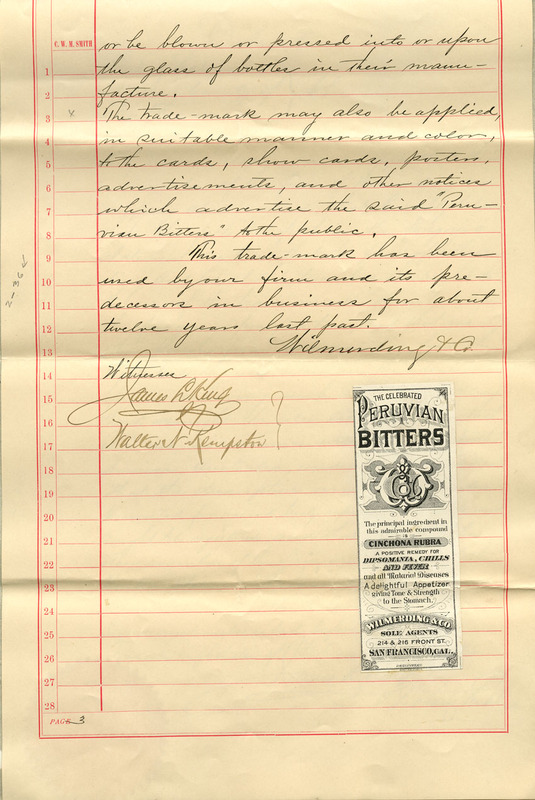 C. W. M. SMITH
or be blown or pressed into or upon
1 the glass of bottles in their manu-
2 facture.
3 x The trade-mark may also be applied,
4 in suitable manner and color,
5 to the cards, show cards, posters,
6 advertisements, and other notices
7 which advertise the said "Peru-
8 vian Bitters" to the public.
9 This trade-mark has been
10 used by our firm and its pre-
11 decessors in business for about
12 twelve years last past.
13 Wilmerding & Co.
14 Witnesses
15 James L. King
16
17 Walter N. Rempston
18
19
20
21
22
23
24
25
26
27
28
PAGE 3
2-36
THE CELEBRATED
PERUVIAN
BITTERS
The principal ingredient in
this admirable compound
is
CINCHONA RUBRA
A POSITIVE REMEDY FOR
DIPSOMANIA, CHILLS
AND FEVER
and all Malarial Diseases
A delightful Appetizer
giving Tone & Strength
to the Stomach.
WILMERDING & CO
SOLE AGENTS
214 & 216 FRONT ST.
SAN FRANCISCO, CAL.